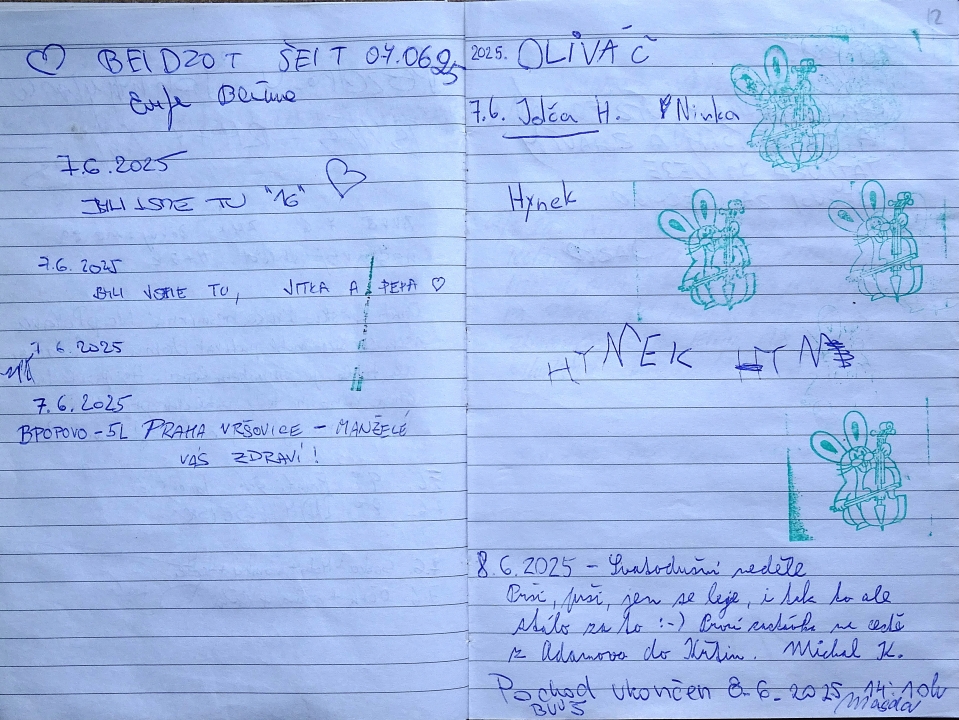 BEIDZOT ŠEIT 07.06.25
7.6.2025
BYLI JSME TU "16"
7.6.2025
BYLI JSME TU, JITKA A PEPA
7.6.2025
7.6.2025
BPOPOVO-5L PRAHA VRŠOVICE - MANŽELÉ
VÁS ZDRAVÍ!
12
2025. OLIVÁČ
7.6. Jdča H. Ninka
Hynek
HYNEK HYN
8.6.2025 - Svatodušní neděle
Prší, prší, jen se leje, i tak to ale
stálo za to :-) První zastávka na cestě
z Adamova do Křtin. Michal K.
Pochod ukončen 8.6.2025 14:10h
BVVŠ Magda